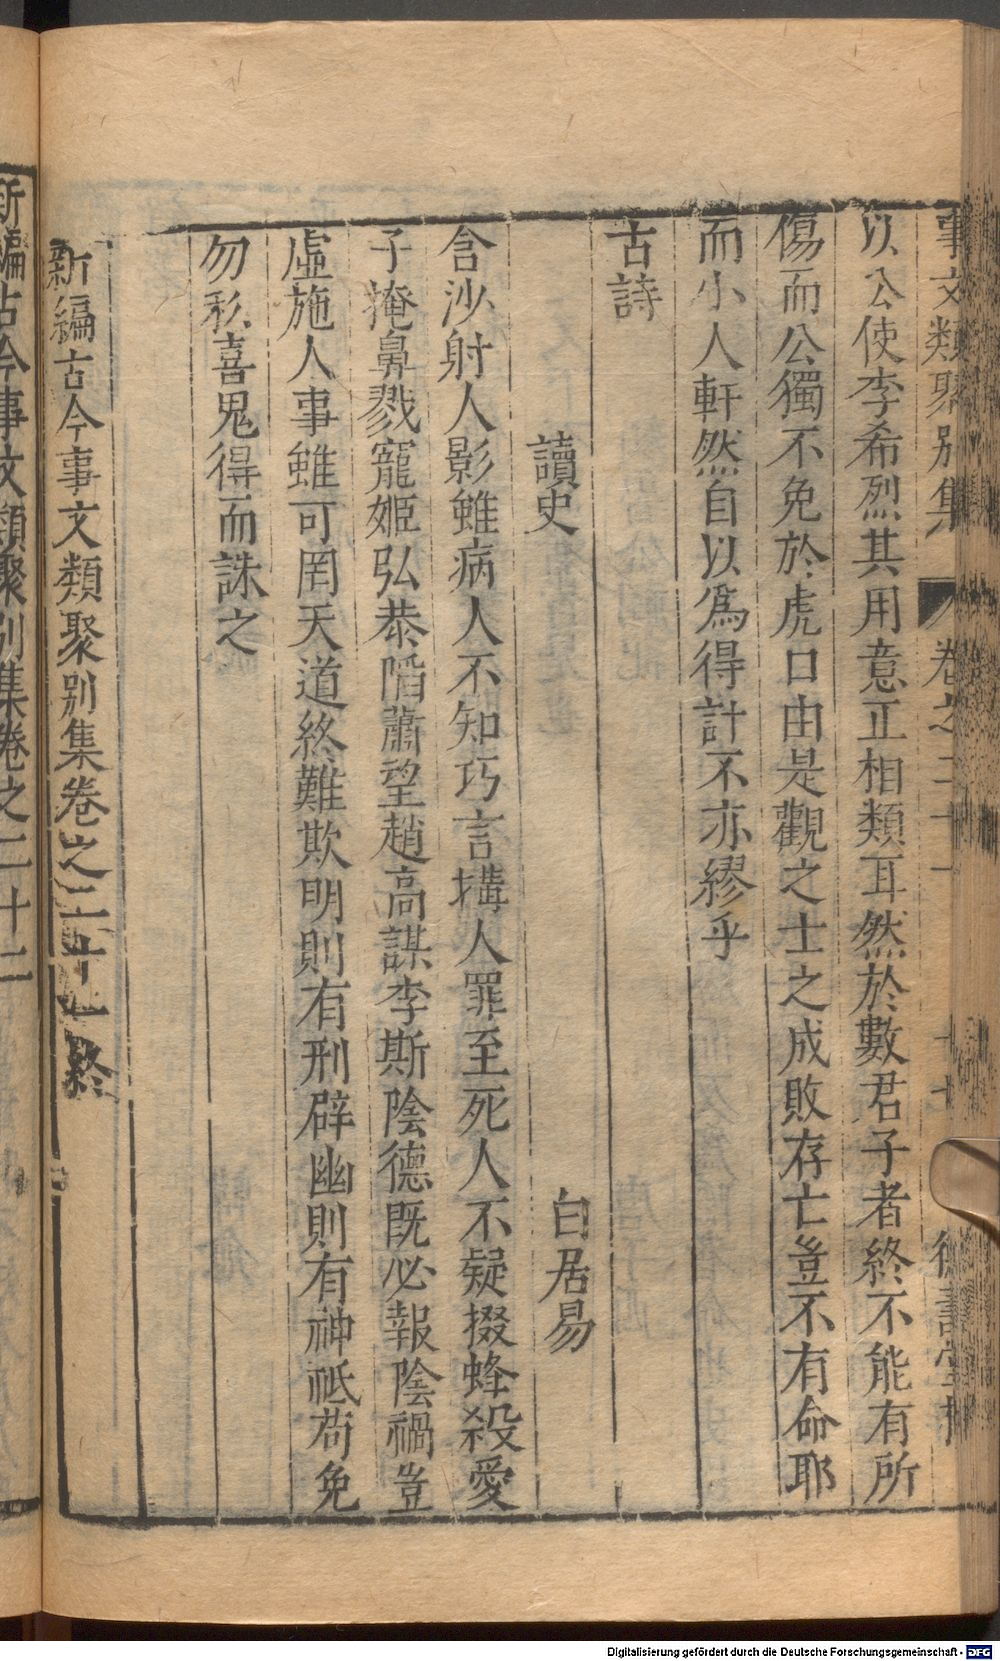 事文類聚別集 卷之二十一 十七 德壽堂梓
以公使李希烈其用意正相類耳然於數君子者終不能有所
傷而公獨不免於虎口由是觀之士之成敗存亡豈不有命耶
而小人軒然自以爲得計不亦繆乎
古詩
讀史 白居易
含沙射人影雖病人不知巧言搆人罪至死人不疑掇蜂殺愛
子掩鼻戮寵姬弘恭陷蕭望趙高謀李斯陰德既必報陰禍豈
虛施人事雖可罔天道終難欺明則有刑辟幽則有神祗苟免
勿私喜鬼得而誅之
新編古今事文類聚別集卷之二十一終
新編古今事文類聚別集卷之二十二
Digitalisierung gefördert durch die Deutsche Forschungsgemeinschaft - DFG